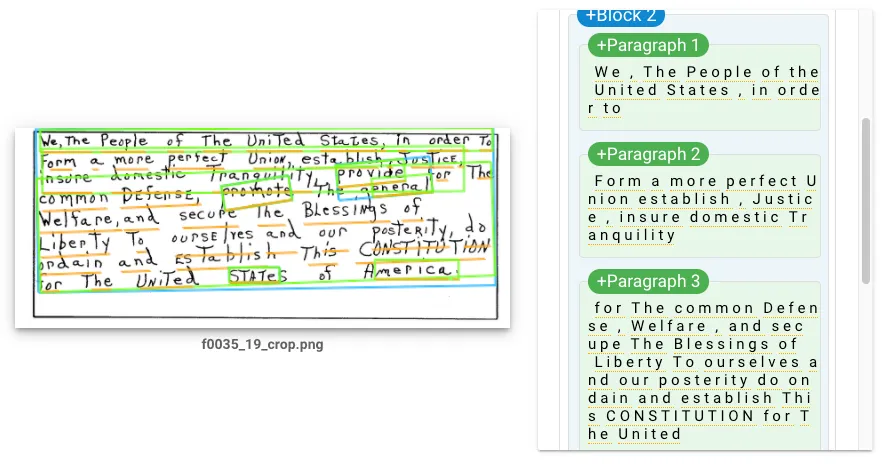 We, The People of The United States, in order To
Form a more perfect Union, establish Justice,
insure domestic Tranquility, provide for The
common Defense, promote The general
Welfare, and secure The Blessings of
Liberty To ourselves and our posterity, do
ordain and establish This CONSTITUTION
for The United STATES of America.
f0035_19_crop.png
+Block 2
+Paragraph 1
We , The People of the
United States , in orde
r to
+Paragraph 2
Form a more perfect U
nion establish , Justic
e , insure domestic Tr
anquility
+Paragraph 3
for The common Defen
se , Welfare , and sec
upe The Blessings of
Liberty To ourselves a
nd our posterity do on
dain and establish Thi
s CONSTITUTION for T
he United